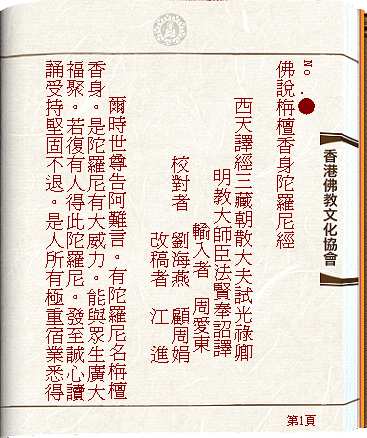 No.●
佛說栴檀香身陀羅尼經
西天譯經三藏朝散大夫試光祿卿
明教大師臣法賢奉詔譯
輸入者 周愛東
校對者 劉海燕 顧周娟
改稿者 江 進
爾時世尊告阿難言。有陀羅尼名栴檀
香身。是陀羅尼有大威力。能與眾生廣大
福聚。若復有人得此陀羅尼。發至誠心讀
誦受持堅固不退。是人所有極重宿業悉得
香港佛教文化協會
第1頁